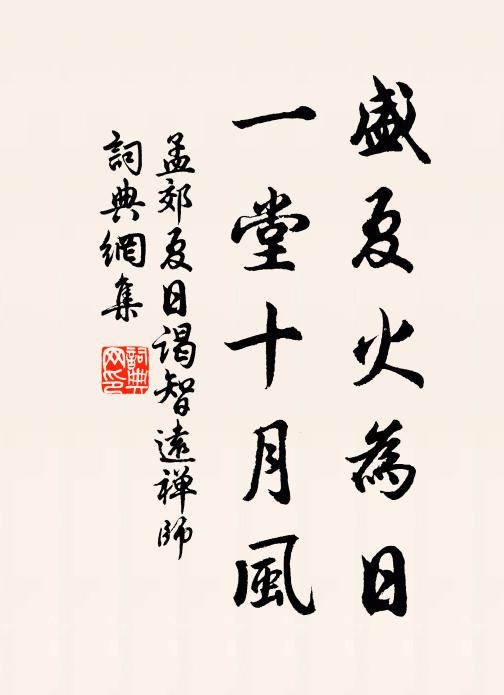 盛夏火為日
一堂十月風
孟郊夏日謁智遠禪師
詞典網集
詞典網印